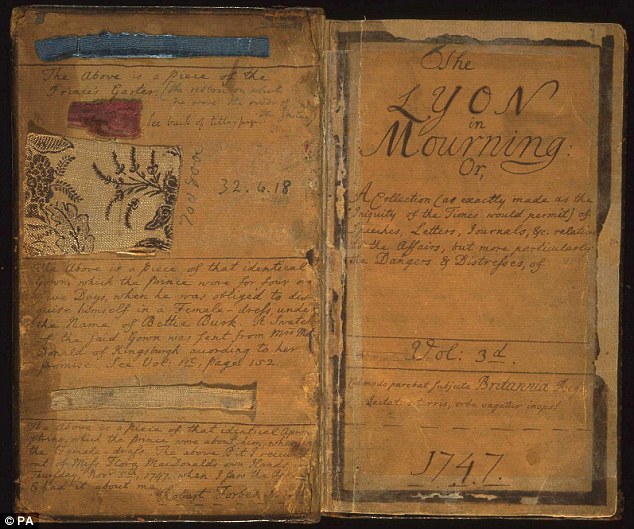 The Above is a piece of the
Prince's Garter, (the ribbon on which
he wore the order of
the
See back of title page.
32.4.18
The Above is a piece of that identical
Gown, which the Prince wore for four or
five Days, when he was obliged to dis-
guise himself in a Female-dress under
the Name of Bettie Burk. A Swatch
of the said Gown was sent from Mrs Mc
Donald of Kingsburgh according to her
promise. See Vol: page 152.
The Above is a piece of that identical Apron
string, which the Prince wore about him, when in
the Female-dress. The above Bit I received
out of Miss Flora MacDonald's own Hands
Thursday Novr 5th 1747, when I saw the Apron
& had it about me.
Robert Forbes
The
LYON
in
Mourning:
Or,
A Collection (as exactly made as the
Iniquity of the Times would permit) of
Speeches, Letters, Journals, &c. relative
to the Affairs, but more particularly
the Dangers & Distresses, of
Vol: 3d.
parebat subjecta Britannia
terris, orbe vagatur inops!
1747.
© PA